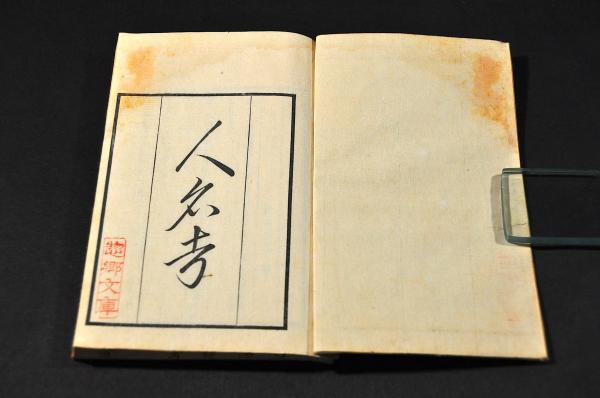 人名考
惣郷文庫